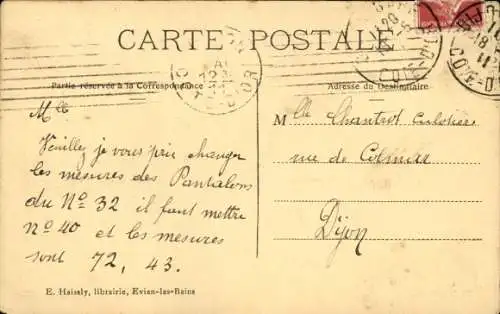 CARTE POSTALE
Partie réservée à la Correspondance
Adresse du Destinataire
Mlle
Veuillez je vous prie changer
les mesures des Pantalons
du Nº 32 il faut mettre
Nº 40 et les mesures
sont 72, 43.
Mlle Chantrot Culotière
rue de Colmar
Dijon
E. Haissly, librairie, Evian-les-Bains
COTE-D'OR